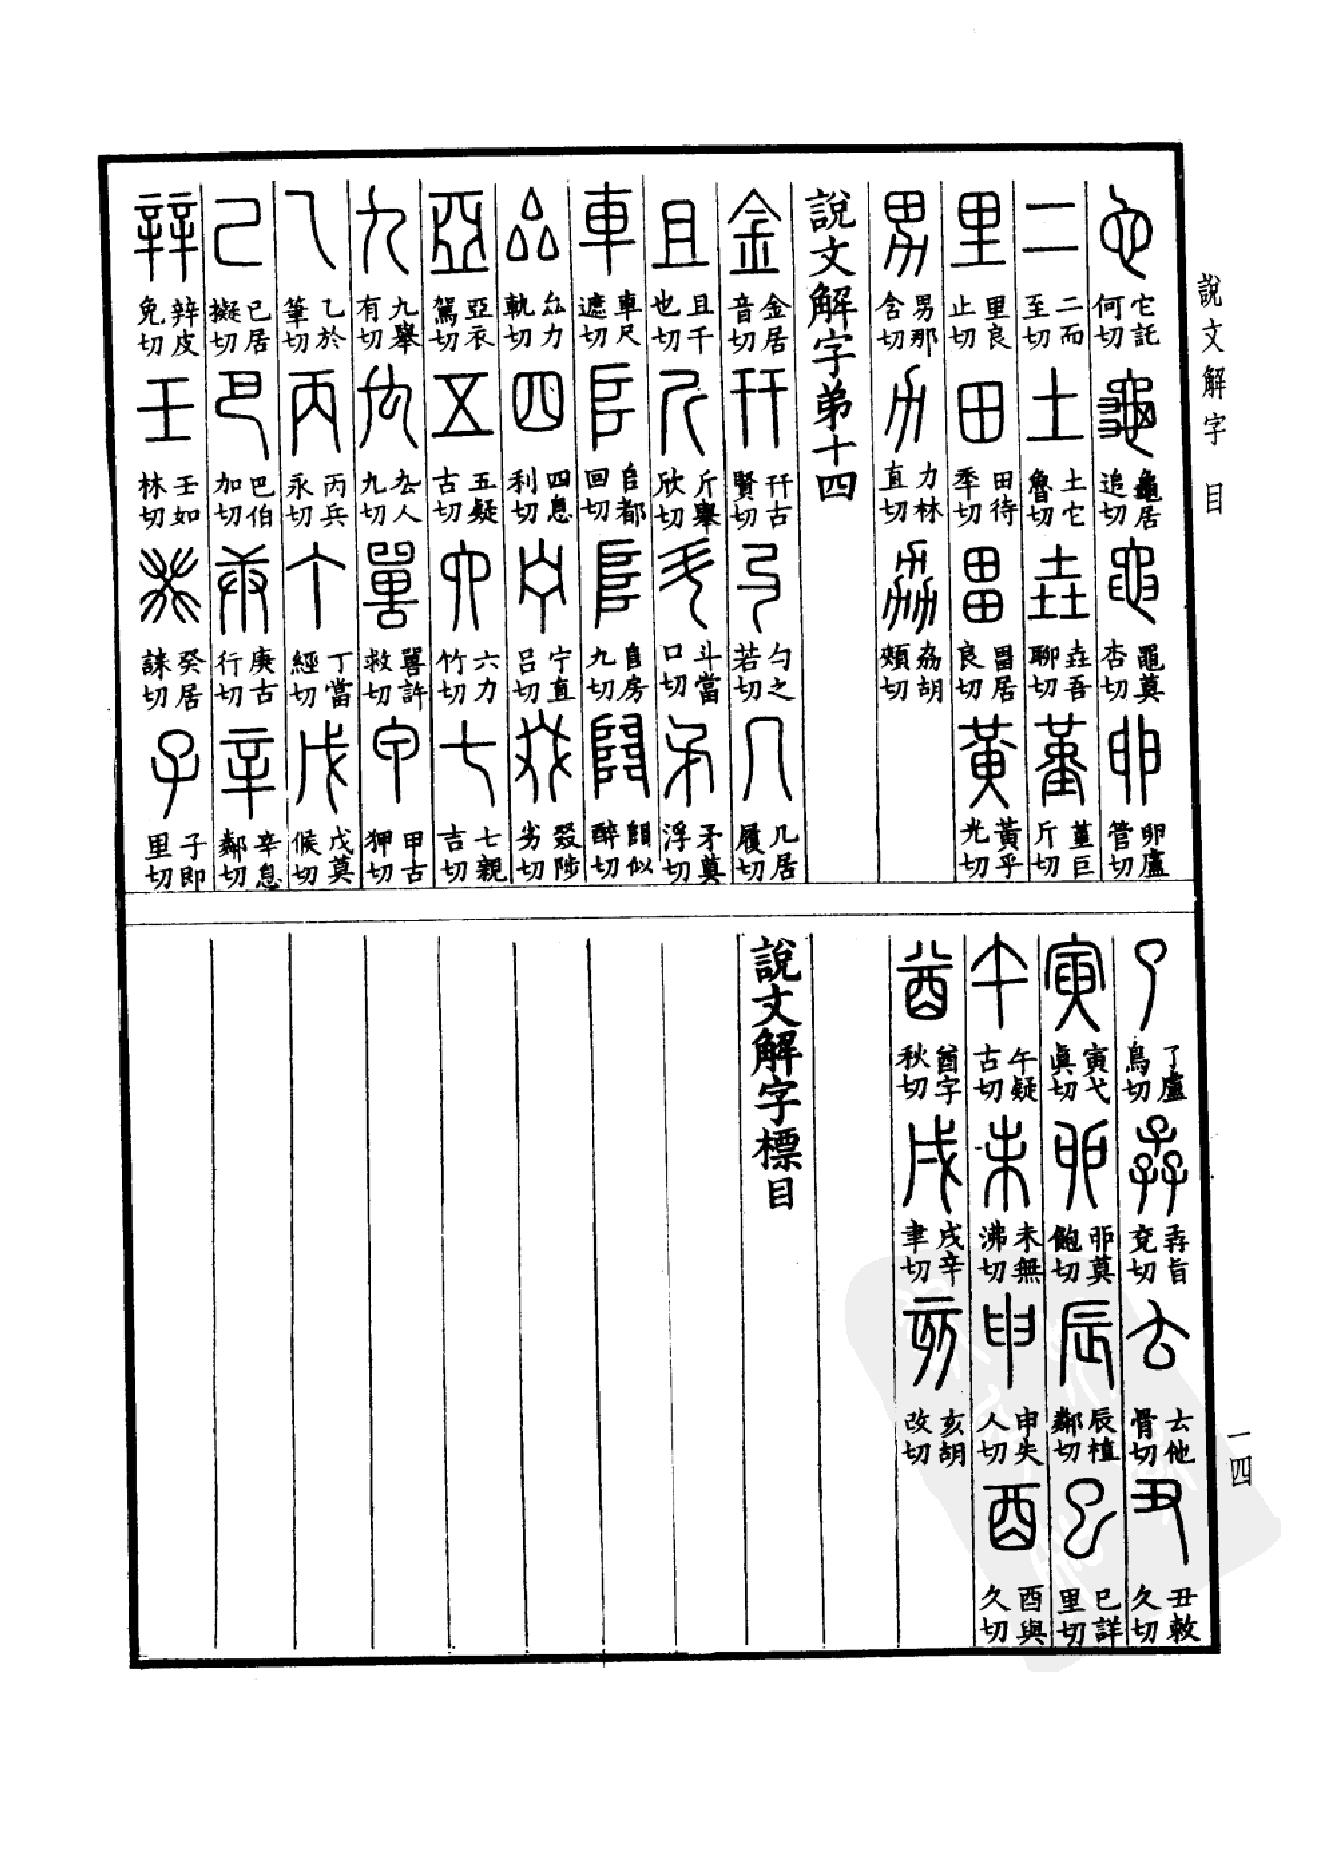 說文解字 目
一四
它 它託何切 龜 龜居追切 黽 黽莫杏切 卵 卵盧管切
二 二而至切 土 土它魯切 垚 垚吾聊切 堇 堇巨斤切
里 里良止切 田 田待秊切 畕 畕居良切 黃 黃乎光切
男 男那含切 力 力林直切 劦 劦胡頰切
說文解字弟十四
金 金居音切 幵 幵古賢切 勺 勺之若切 几 几居履切
且 且千也切 斤 斤舉欣切 斗 斗當口切 矛 矛莫浮切
車 車尺遮切 𠂤 𠂤都回切 𨸏 𨸏房九切 𨺅 𨺅似醉切
厽 厽力軌切 四 四息利切 宁 宁直呂切 叕 叕陟劣切
亞 亞衣駕切 五 五疑古切 六 六力竹切 七 七親吉切
九 九舉有切 禸 禸人九切 嘼 嘼許救切 甲 甲古狎切
乙 乙於筆切 丙 丙兵永切 丁 丁當經切 戊 戊莫候切
己 己居擬切 巴 巴伯加切 庚 庚古行切 辛 辛息鄰切
辡 辡皮免切 壬 壬如林切 癸 癸居誄切 子 子即里切
了 了盧鳥切 孨 孨旨兗切 𠫓 𠫓他骨切 丑 丑敕久切
寅 寅弋眞切 卯 卯莫飽切 辰 辰植鄰切 巳 巳詳里切
午 午疑古切 未 未無沸切 申 申失人切 酉 酉與久切
酋 酋字秋切 戌 戌辛聿切 亥 亥胡改切
說文解字標目